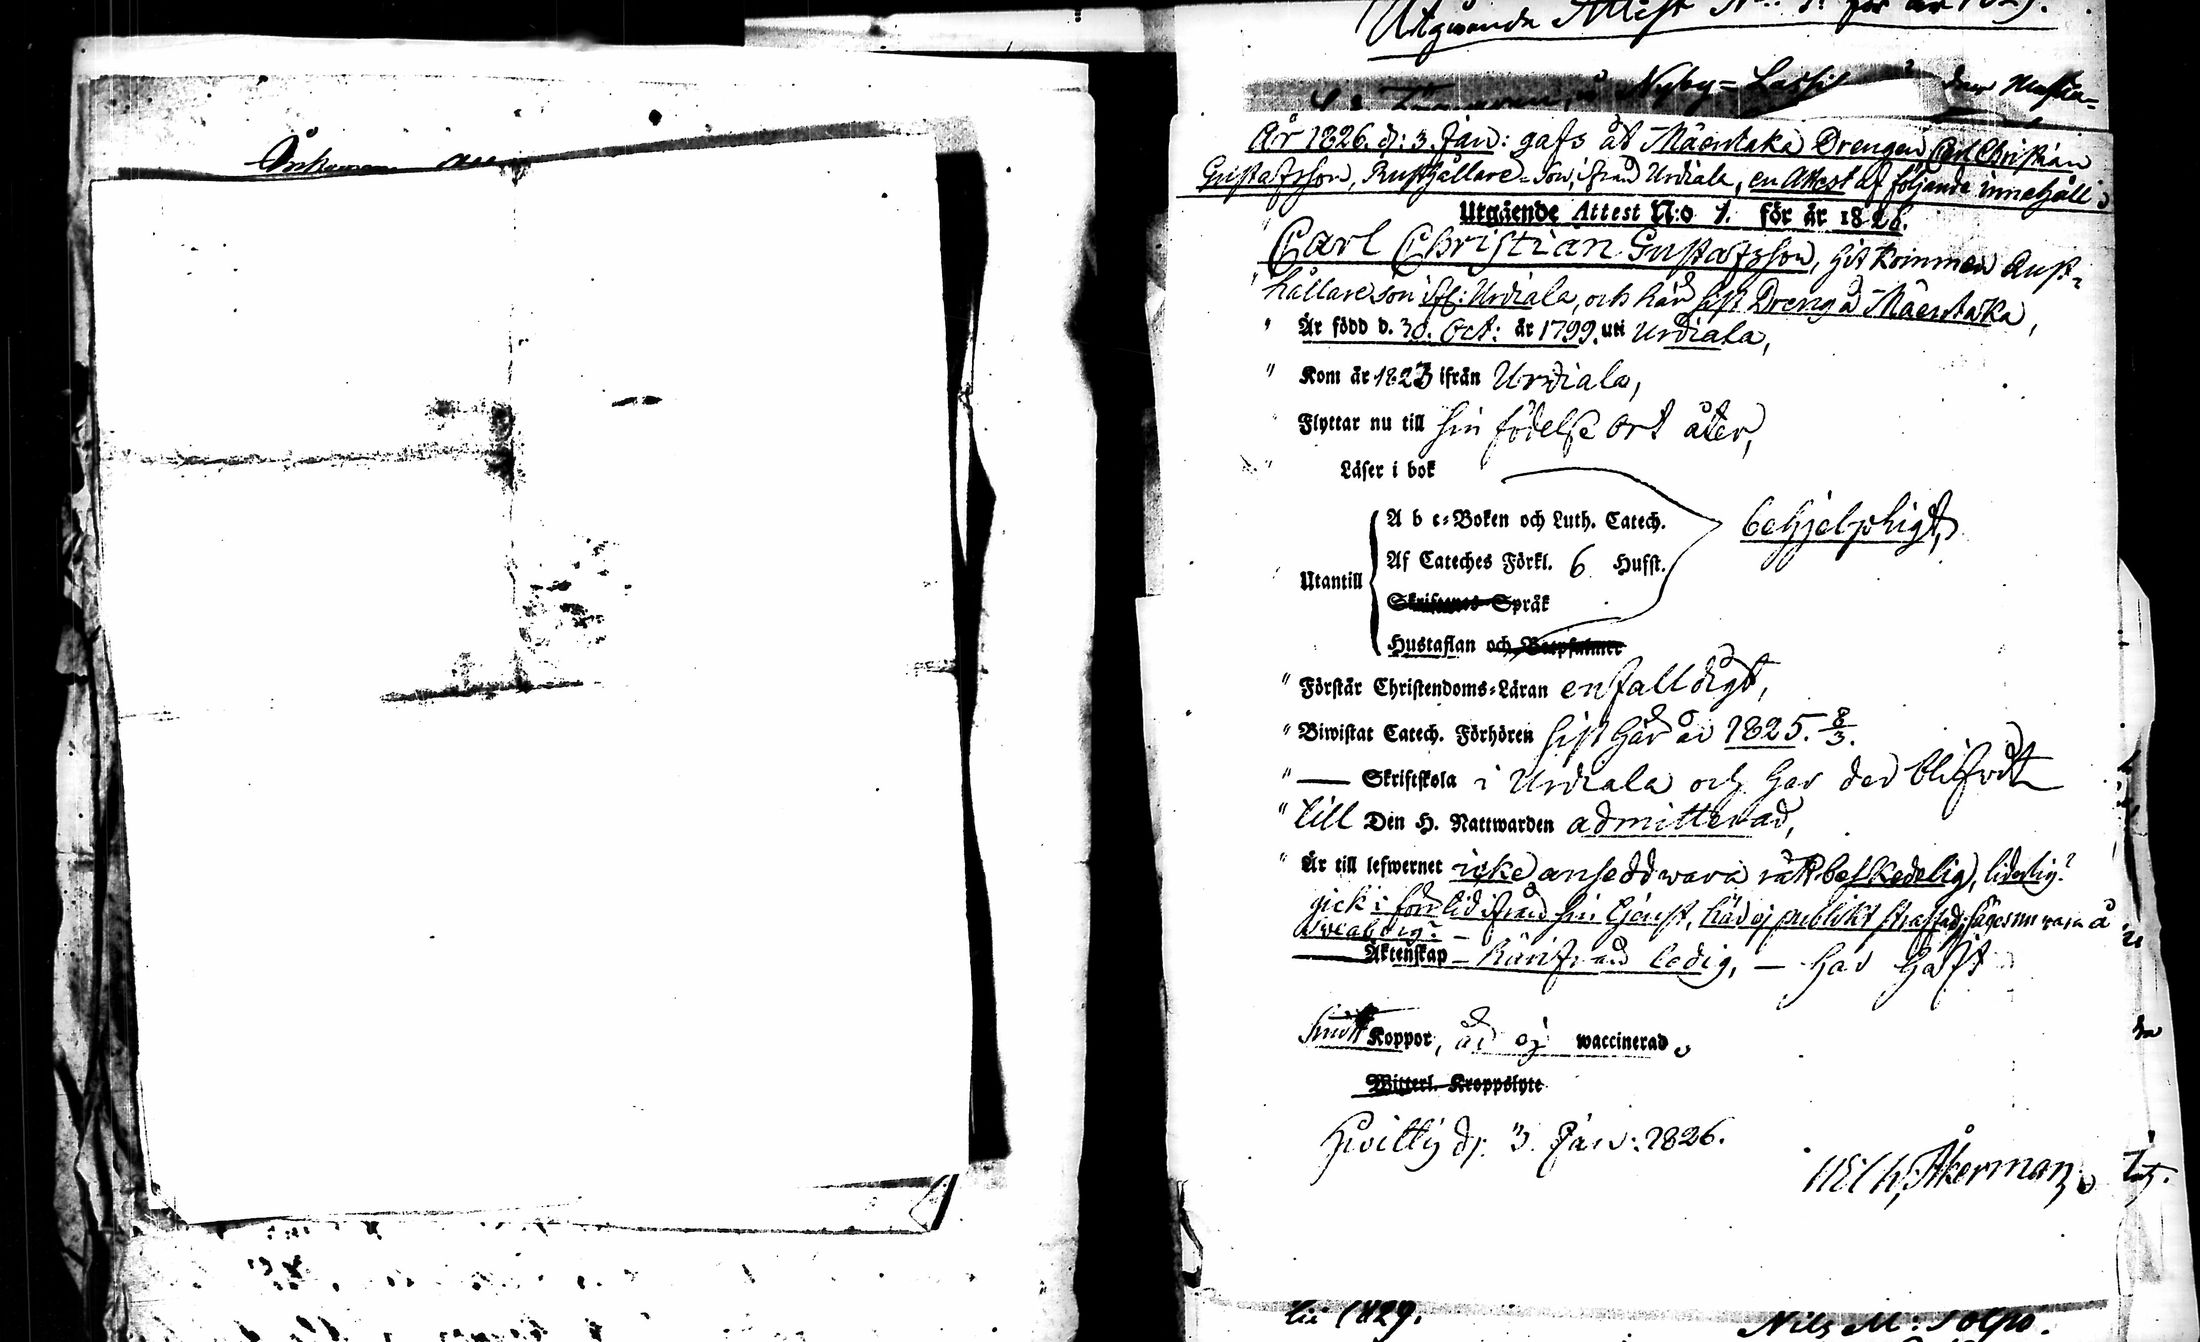 Ankomna
Utgående Attest N:o 1. för år 1829.
Nyby-Lassila
År 1826. d: 3. Jan: gafs åt Mäentaka Drengen Carl Christian
Gustafsson, Rusthållare-son, ifrån Urdiala, en Attest af följande innehåll:
Utgående Attest N:o 1. för år 1826.
Carl Christian Gustafsson, hit kommen Rust-
hållare son ifr: Urdiala, och här sist Dreng å Mäentaka,
" Är född d. 30. Oct: år 1799. uti Urdiala,
" Kom år 1823 ifrån Urdiala,
Flyttar nu till sin födelse ort åter,
" Läser i bok
A b c-Boken och Luth. Catech. behjelpligt,
Af Cateches Förkl. 6 Hufst.
Utantill
Skriftenes Språk
Hustaflan och Botpsalmer
" Förstår Christendoms-Läran enfalldigt,
" Biwistat Catech. Förhören sist här år 1825. 8/3.
" — Skriftskola i Urdiala och har der blifvit
" till Den H. Nattwarden admitterad,
" Är till lefwernet icke ansedd vara rätt beskedelig, liderlig?
gick i förtid ifrån sin tjenst, här ej publikt straffad; säges nu vara å
— Äktenskap – härifrån ledig, — har haft
Smitt Koppor, är ej waccinerad.
Witterl. Kroppslyte
Hvittis d: 3. Jan: 1826.
Wilh. Åkerman.
1829.
Nils M: Polso.